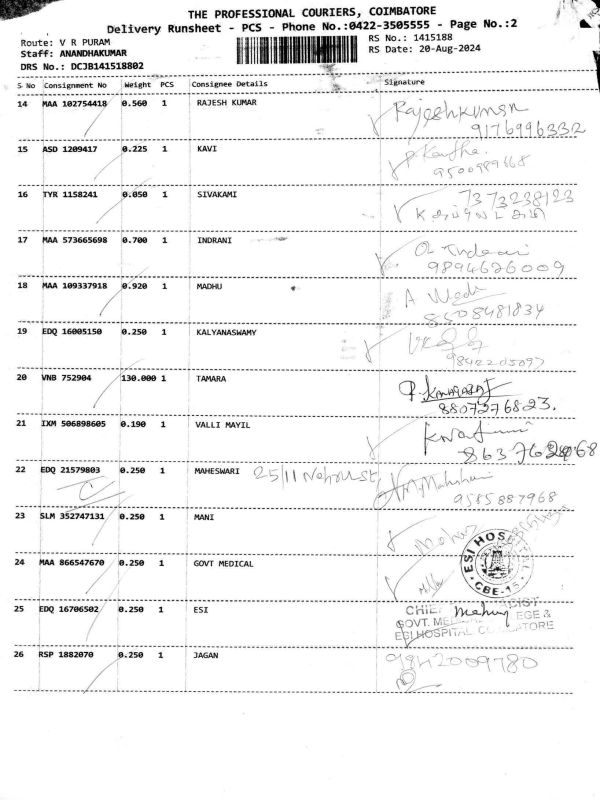 THE PROFESSIONAL COURIERS, COIMBATORE
Delivery Runsheet - PCS - Phone No.:0422-3505555 - Page No.:2
Route: V R PURAM
RS No.: 1415188
Staff: ANANDHAKUMAR
RS Date: 20-Aug-2024
DRS No.: DCJB141518802
S No Consignment No Weight PCS Consignee Details Signature
14 MAA 102754418 0.560 1 RAJESH KUMAR Rajeshkumar
9176996332
15 ASD 1209417 0.225 1 KAVI
9500989668
16 TYR 1158241 0.050 1 SIVAKAMI 7373238123
17 MAA 573665698 0.700 1 INDRANI
9894626009
18 MAA 109337918 0.920 1 MADHU A
8508481834
19 EDQ 16005150 0.250 1 KALYANASWAMY
9842205097
20 VNB 752904 130.000 1 TAMARA P. KANAGARAJ
8807276823.
21 IXM 506898605 0.190 1 VALLI MAYIL
22 EDQ 21579803 0.250 1 MAHESWARI 25/11 Nehru st,
9585887968
23 SLM 352747131 0.250 1 MANI
24 MAA 866547670 0.250 1 GOVT MEDICAL
ESI HOSPITAL
CBE-15
25 EDQ 16706502 0.250 1 ESI CHIEF
GOVT. EGE &
ESI HOSPITAL COIMBATORE
26 RSP 1882070 0.250 1 JAGAN 9842009780